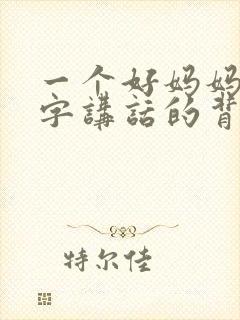 一个好妈妈
字講話的背
特尔佳